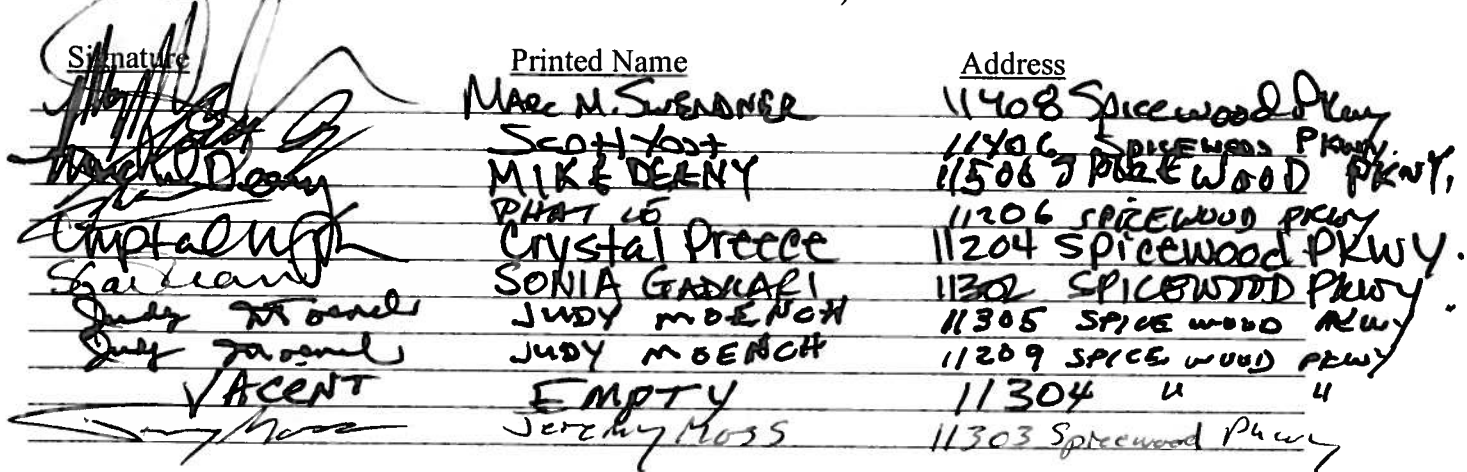 Signature Printed Name Address
MARC M. SWENDNER 11408 Spicewood Pkwy
Scott Yost 11406 SPICEWOOD PKWY.
MIKE DEENY 11506 SPICEWOOD PKWY.
PHAT LE 11206 SPICEWOOD PKWY
Crystal Preece 11204 Spicewood PKWY.
SONIA GADKARI 11302 SPICEWOOD PKWY.
Judy Moench JUDY MOENCH 11305 SPICE WOOD PKWY
Judy Moench JUDY MOENCH 11209 SPICE WOOD PKWY
VACENT EMPTY 11304 " "
Jeremy Moss 11303 Spicewood Pkwy